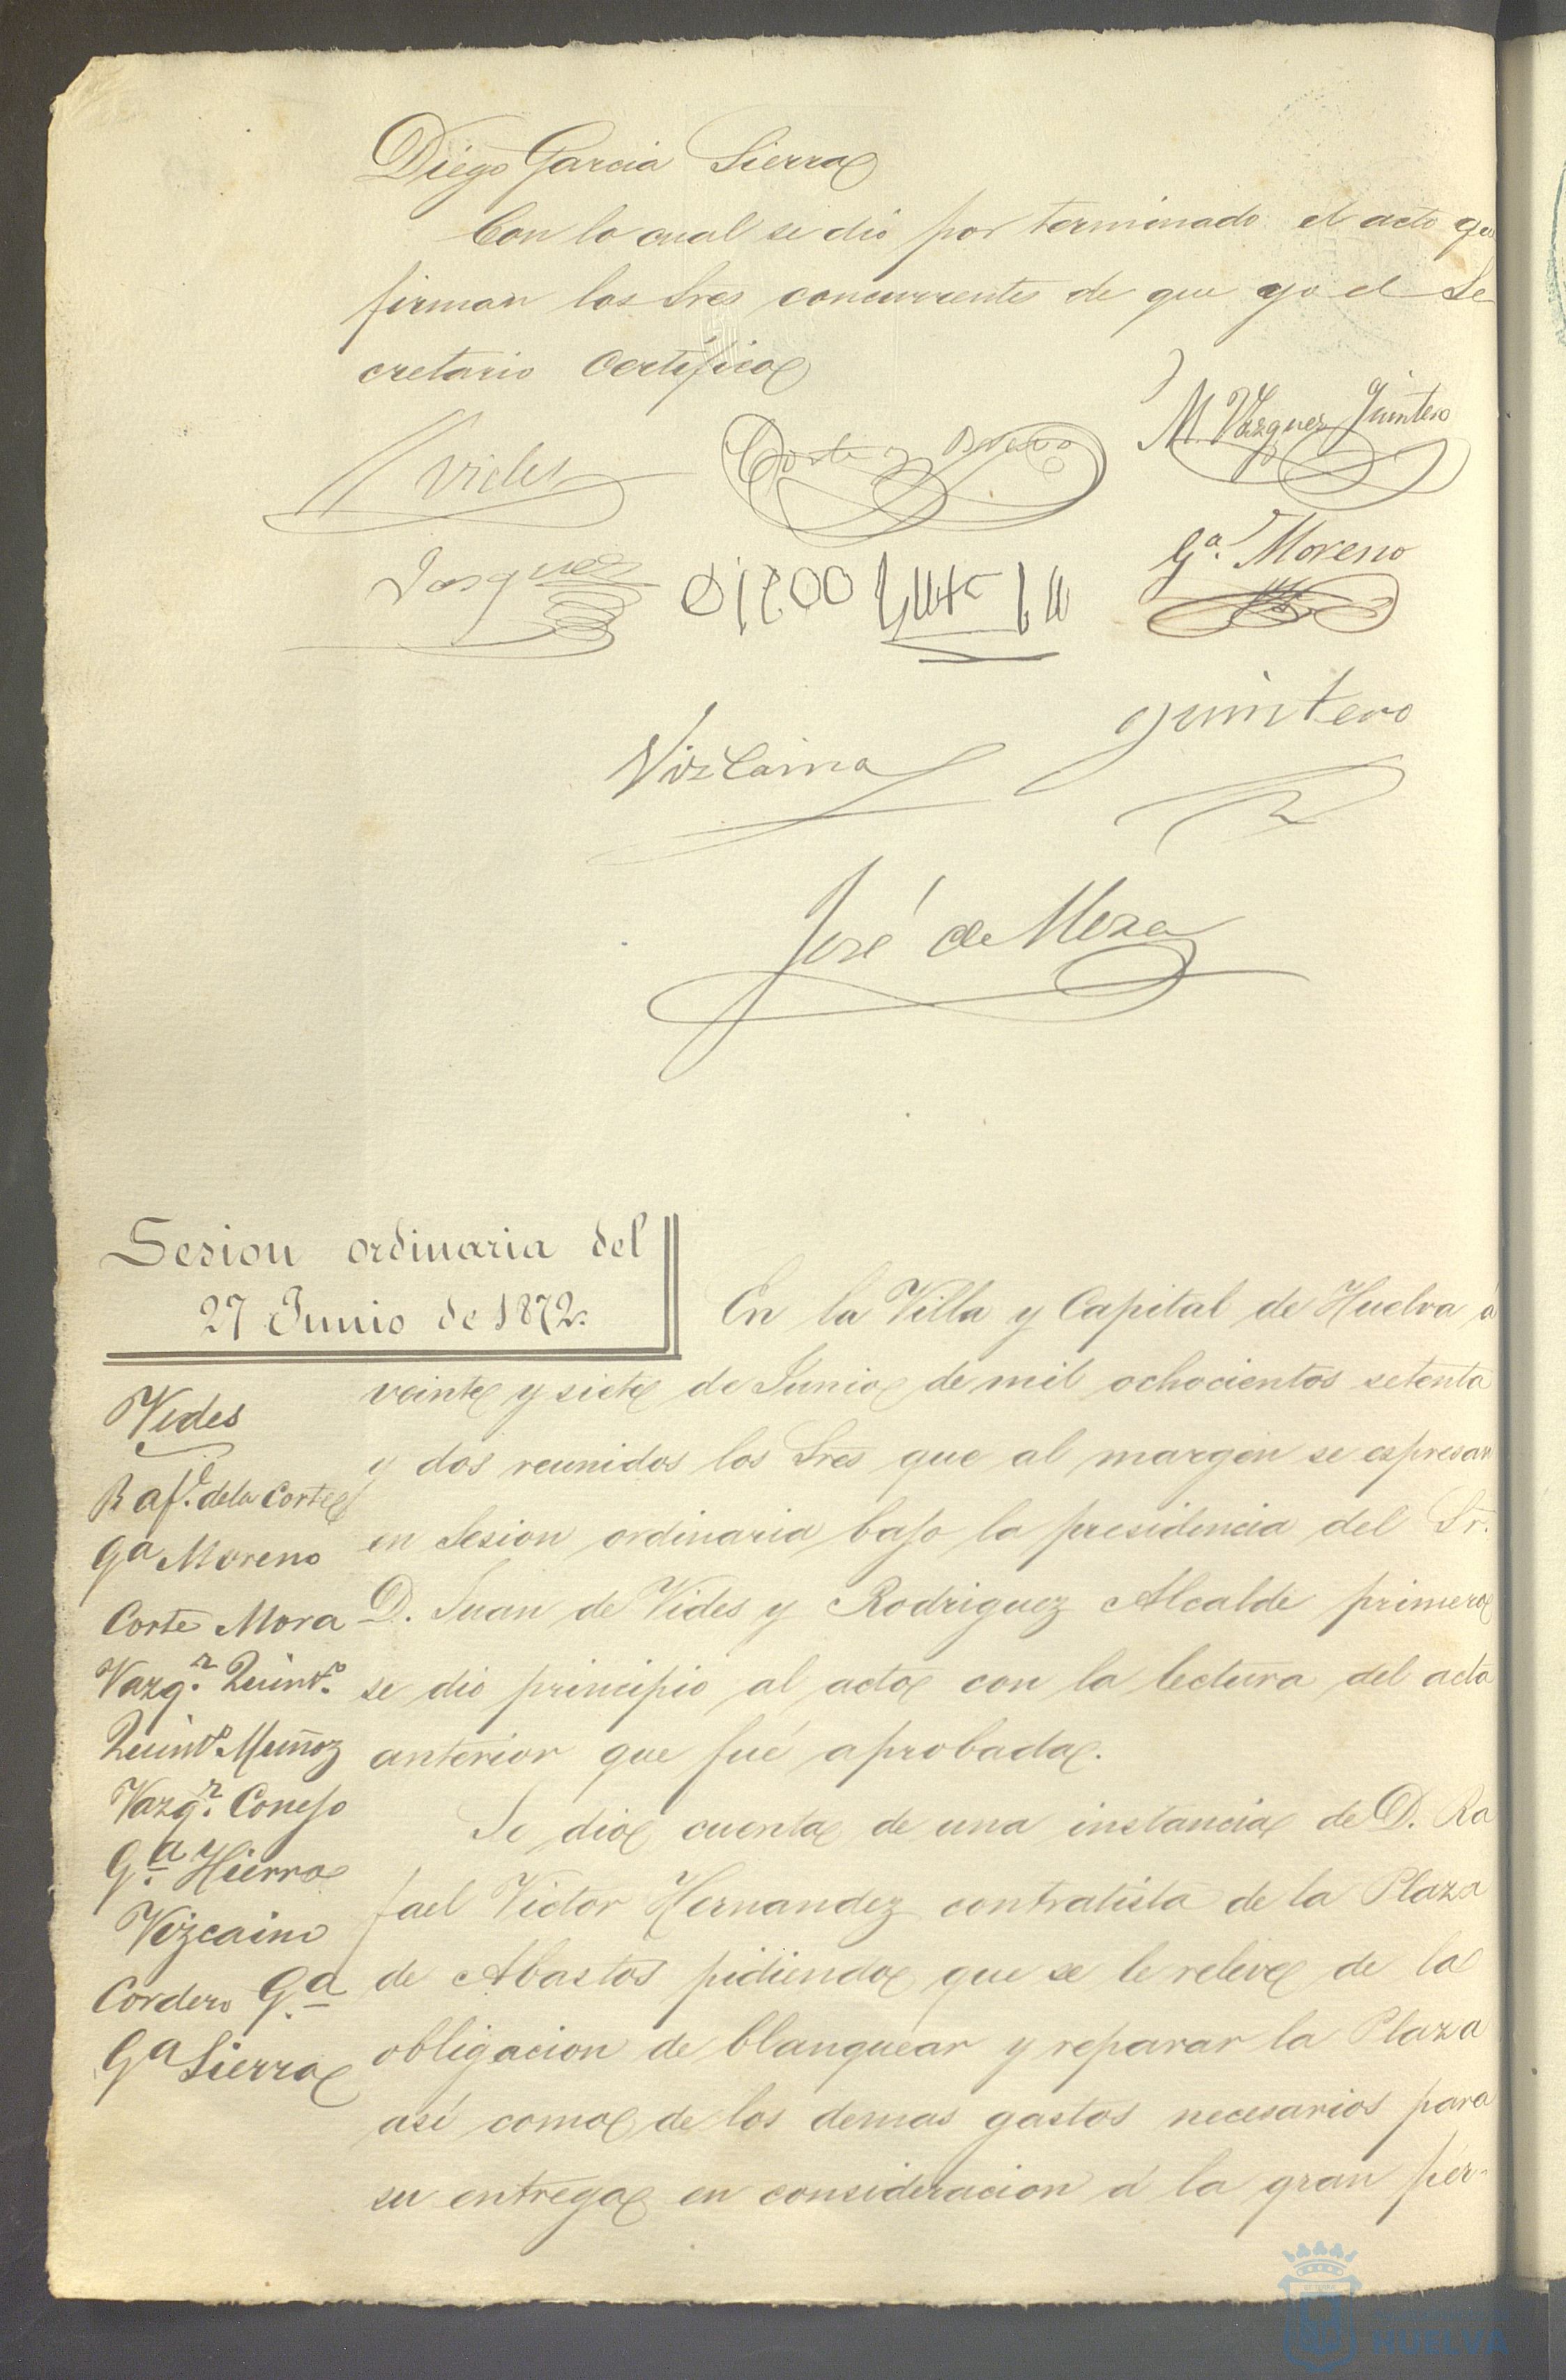 Diego Garcia Sierra
Con lo cual se dió por terminado el acto que
firman los Sres concurrentes de que yo el Se
cretario Certifico
Vides
Corte y Bravo
M. Vazquez Quintero
Vasquez
Gª. Moreno
Vizcaino
Quintero
José de Mesa
Sesion ordinaria del
27 Junio de 1872.
Vides
Rafl. de la Corte
Gª Moreno
Corte Mora
Vazqz. Quinto.
Quinto. Muñoz
Vazqz. Conejo
Gª. y Hierro
Vizcaino
Cordero Gª.
Gª Sierra
En la Villa y Capital de Huelva á
veinte y siete de Junio de mil ochocientos setenta
y dos reunidos los Sres que al margen se espresan
en Sesion ordinaria bajo la presidencia del Sr.
D. Juan de Vides y Rodriguez Alcalde primero
se dio principio al acto con la lectura del acta
anterior que fué aprobada.
Se dio cuenta de una instancia de D. Ra
fael Victor Hernandez contratista de la Plaza
de Abastos pidiendo que se le releve de la
obligacion de blanquear y reparar la Plaza
asi como de los demas gastos necesarios para
su entrega en consideracion á la gran pér-
HUELVA